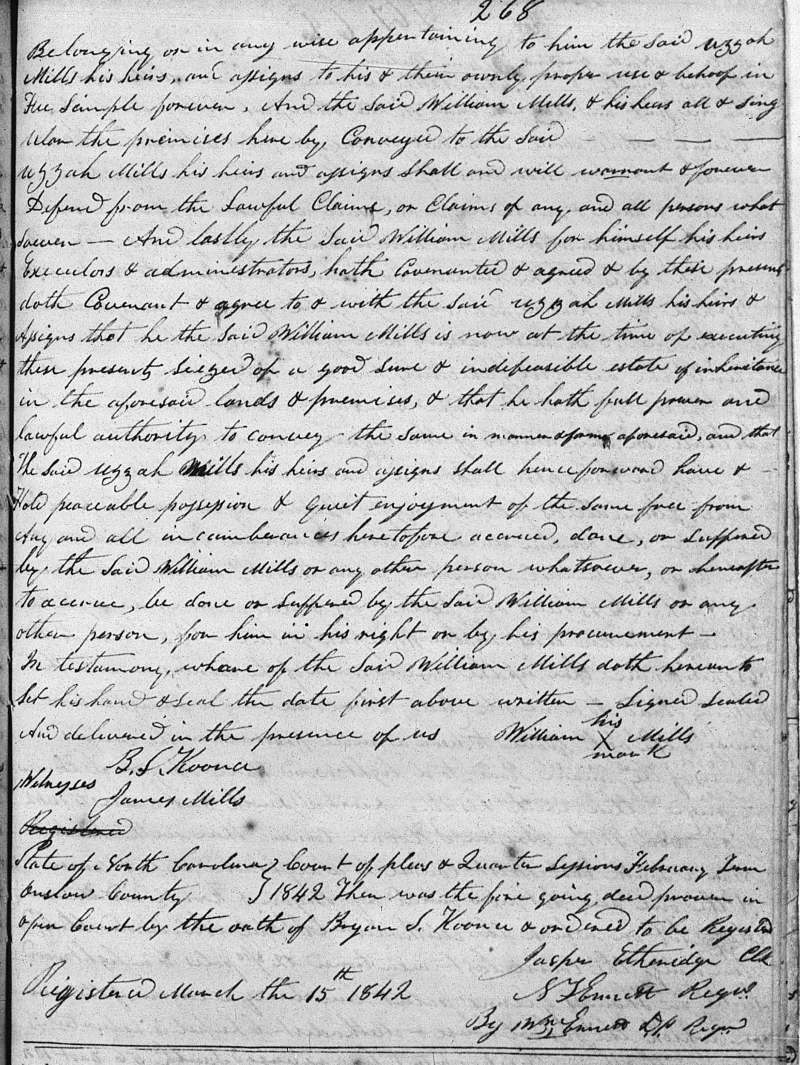 268
Belonging or in any wise appertaining to him the Said Uzzah
Mills his heirs, and assigns to his & their ownly proper use & behoof in
Fee Simple forever, And the Said William Mills, & his heirs all & Sing
ular the premises here by Conveyed to the Said — — —
Uzzah Mills his heirs and assigns Shall and will warrant & forever
Defend from the Lawful Claims, or Claims of any, and all persons what
soever — And lastly the Said William Mills for himself his heirs
Executors & administrators, hath Covenanted & agreed & by these presents
doth Covenant & agree to & with the Said Uzzah Mills his heirs &
Assigns that he the Said William Mills is now at the time of executing
these presents Seized of a good Sure & indefeasible estate of inheritance
in the aforesaid lands & premises, & that he hath full power and
lawful authority to convey the Same in manner & form aforesaid, and that
The Said Uzzah Mills his heirs and assigns shall henceforward have & —
Hold peaceable possession & Quiet enjoyment of the Same free from
Any and all incumberances heretofore accrued, done, or Suffered
by the Said William Mills or any other person whatsoever, or hereafter
to accrue, be done or Suffered by the Said William Mills or any
other person, for him in his right or by his procurement —
In testamony, whare of the Said William Mills doth hereunto
Set his hand & Seal the date first above written — Signed Sealed
And delivered in the presence of us William his X mark Mills
B. S. Koonce
Witnesses
James Mills
Registered
State of North Carolina } Court of pleas & Quarter Sessions February Term
Onslow County } 1842 Then was the fore going deed proven in
open Court by the oath of Bryan S. Koonce & ordered to be Registered
Jasper Etheridge Clk
Registered March the 15th 1842 Ennett Regr.
By Wm Ennett Dp Regr